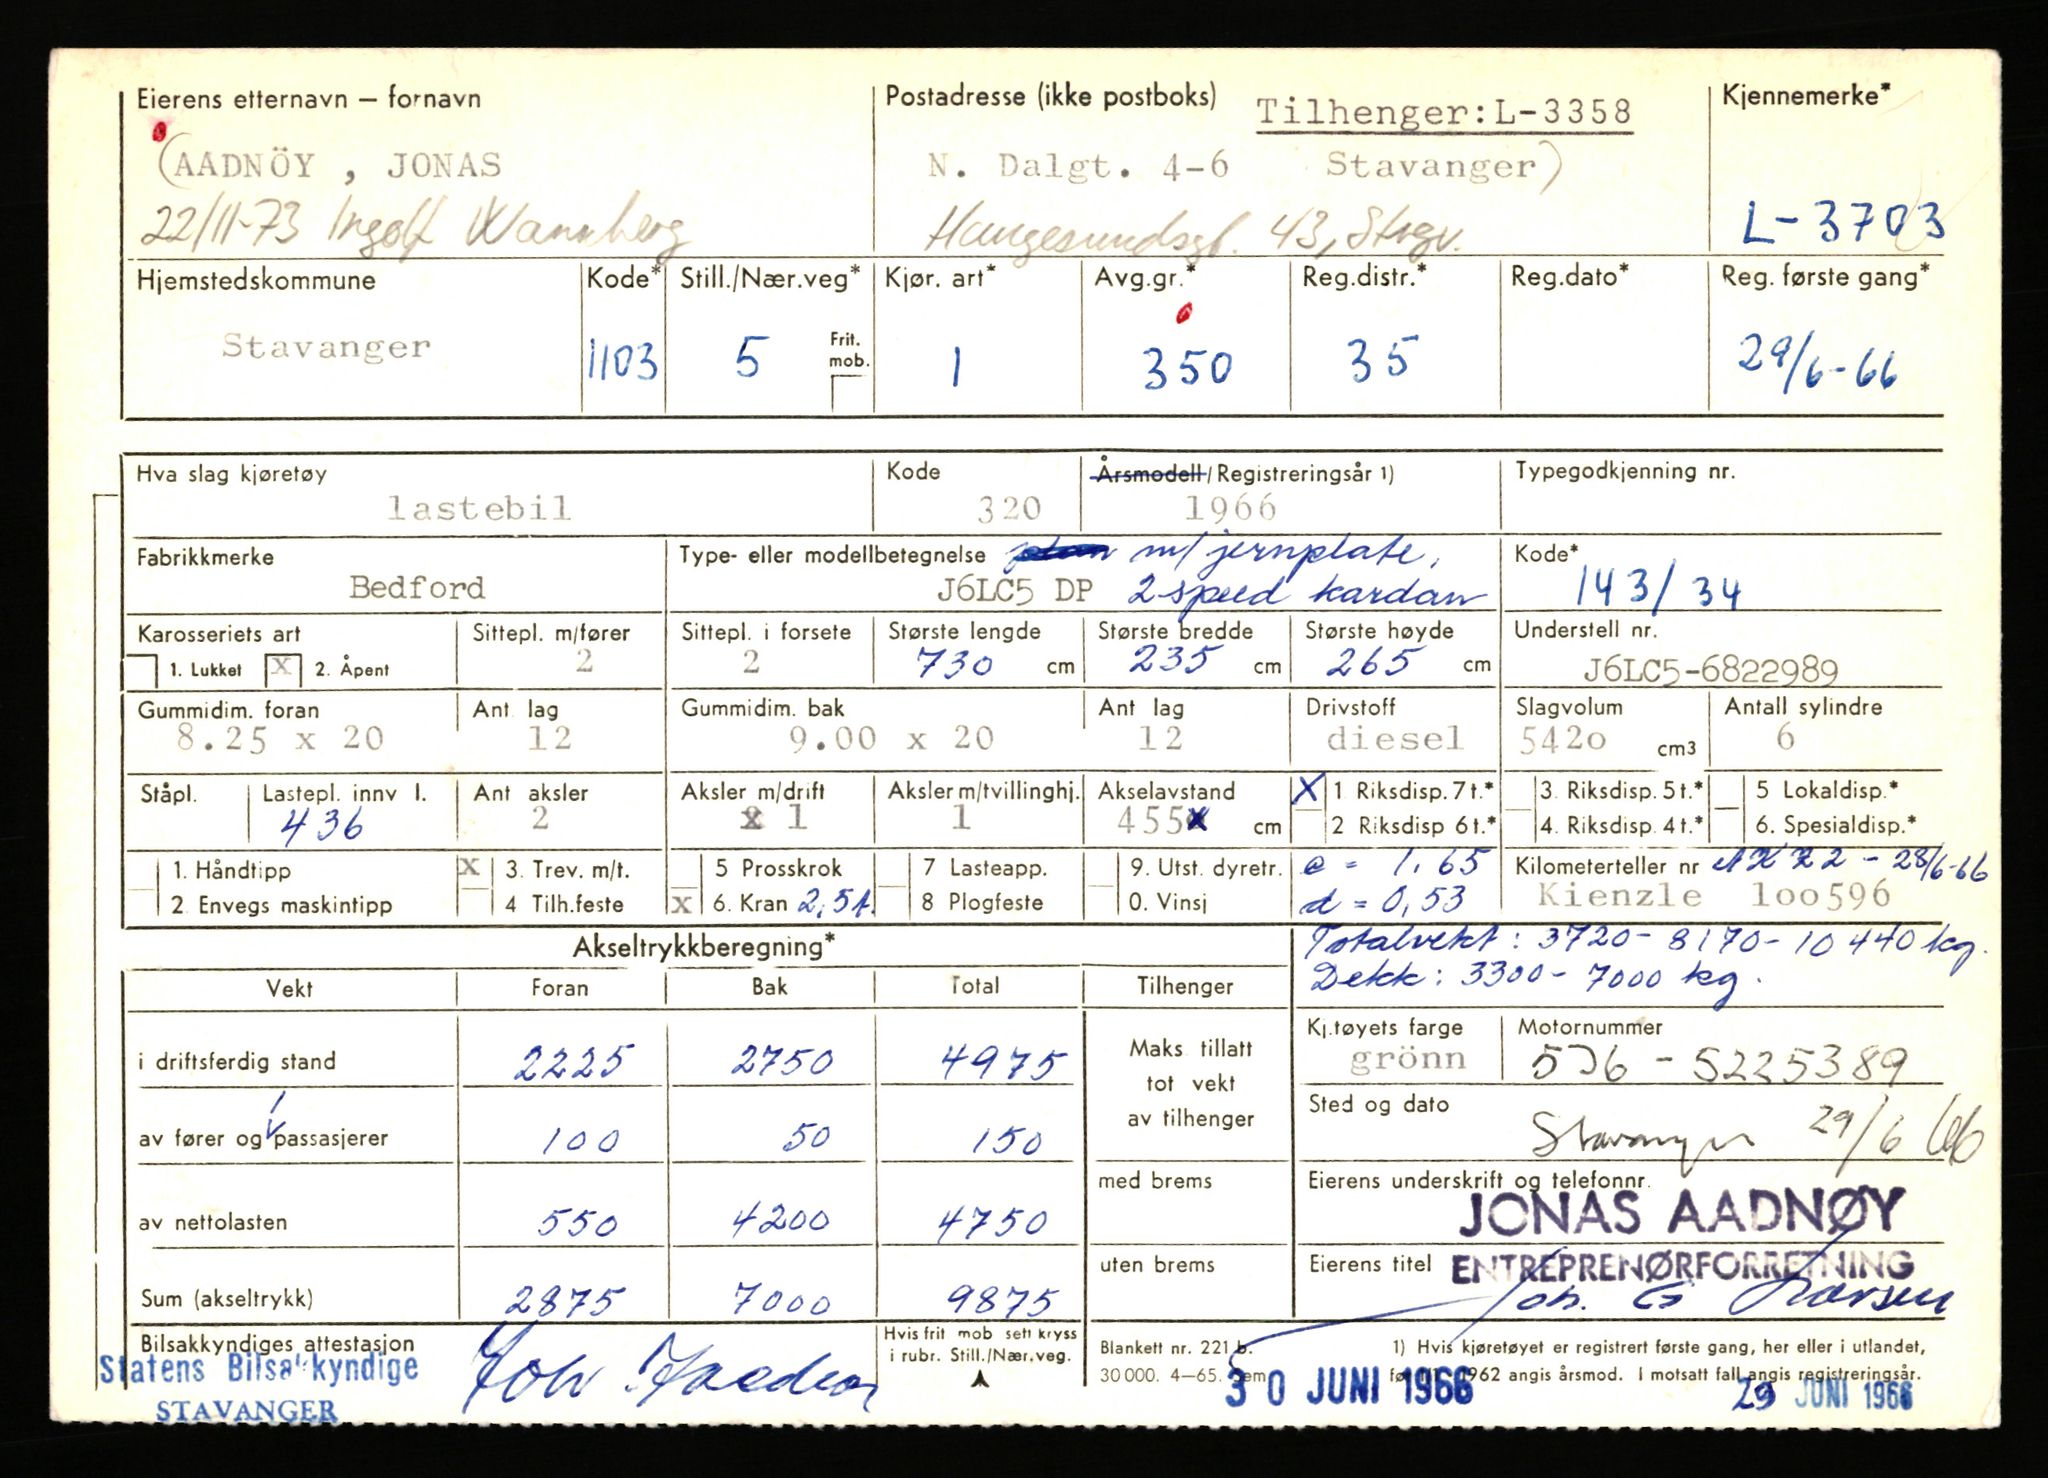 Eierens etternavn – fornavn
Postadresse (ikke postboks)
Tilhenger: L-3358
Kjennemerke*
(AADNÖY , JONAS
N. Dalgt. 4-6 Stavanger)
22/11-73 Ingolf Wannberg
Haugesundsgt. 43, Stvgv.
L-3703
Hjemstedskommune
Kode*
Still./Nær.veg*
Kjør. art*
Avg.gr.*
Reg.distr.*
Reg.dato*
Reg. første gang*
Stavanger
1103
5
Frit. mob.
1
350
35
29/6-66
Hva slag kjøretøy
Kode
Årsmodell/Registreringsår 1)
Typegodkjenning nr.
lastebil
320
1966
Fabrikkmerke
Type- eller modellbetegnelse
plan m/jernplate,
Kode*
Bedford
J6LC5 DP
2-speed kardan
143/34
Karosseriets art
Sittepl. m/fører
Sittepl. i forsete
Største lengde
Største bredde
Største høyde
Understell nr.
1. Lukket x 2. Åpent
2
2
730 cm
235 cm
265 cm
J6LC5-6822989
Gummidim. foran
Ant lag
Gummidim. bak
Ant lag
Drivstoff
Slagvolum
Antall sylindre
8.25 x 20
12
9.00 x 20
12
diesel
542o cm3
6
Ståpl.
Lastepl. innv l.
Ant aksler
Aksler m/drift
Aksler m/tvillinghj.
Akselavstand
X 1 Riksdisp. 7 t.*
3. Riksdisp. 5 t.*
5 Lokaldisp.*
436
2
1
1
455 cm
2 Riksdisp 6 t.*
4. Riksdisp. 4 t.*
6. Spesialdisp.*
1. Håndtipp
x 3. Trev. m/t.
5 Prosskrok
7 Lasteapp.
9. Utst. dyretr.
c = 1,65
Kilometerteller nr
28/6-66
2. Envegs maskintipp
4 Tilh.feste
x 6. Kran 2,5t.
8 Plogfeste
0. Vinsj
d = 0,53
Kienzle 1oo596
Akseltrykkberegning*
Totalvekt: 3720-8170-10440 kg.
Dekk: 3300-7000 kg.
Vekt
Foran
Bak
Total
Tilhenger
Kj.tøyets farge
Motornummer
i driftsferdig stand
2225
2750
4975
Maks tillatt
tot vekt
av tilhenger
grönn
5J6-5225389
Sted og dato
av fører og 1 passasjerer
100
50
150
Stavanger 29/6 66
med brems
Eierens underskrift og telefonnr.
av nettolasten
550
4200
4750
JONAS AADNØY
uten brems
Eierens titel
ENTREPRENØRFORRETNING
Sum (akseltrykk)
2875
7000
9875
Bilsakkyndiges attestasjon
Hvis frit mob sett kryss
i rubr. Still./Nær.veg.
Blankett nr. 221 b.
30 000. 4–65. Sem
1) Hvis kjøretøyet er registrert første gang, her eller i utlandet,
før 1/1 1962 angis årsmod. I motsatt fall angis registreringsår.
Statens Bilsakkyndige
STAVANGER
30 JUNI 1966
29 JUNI 1966